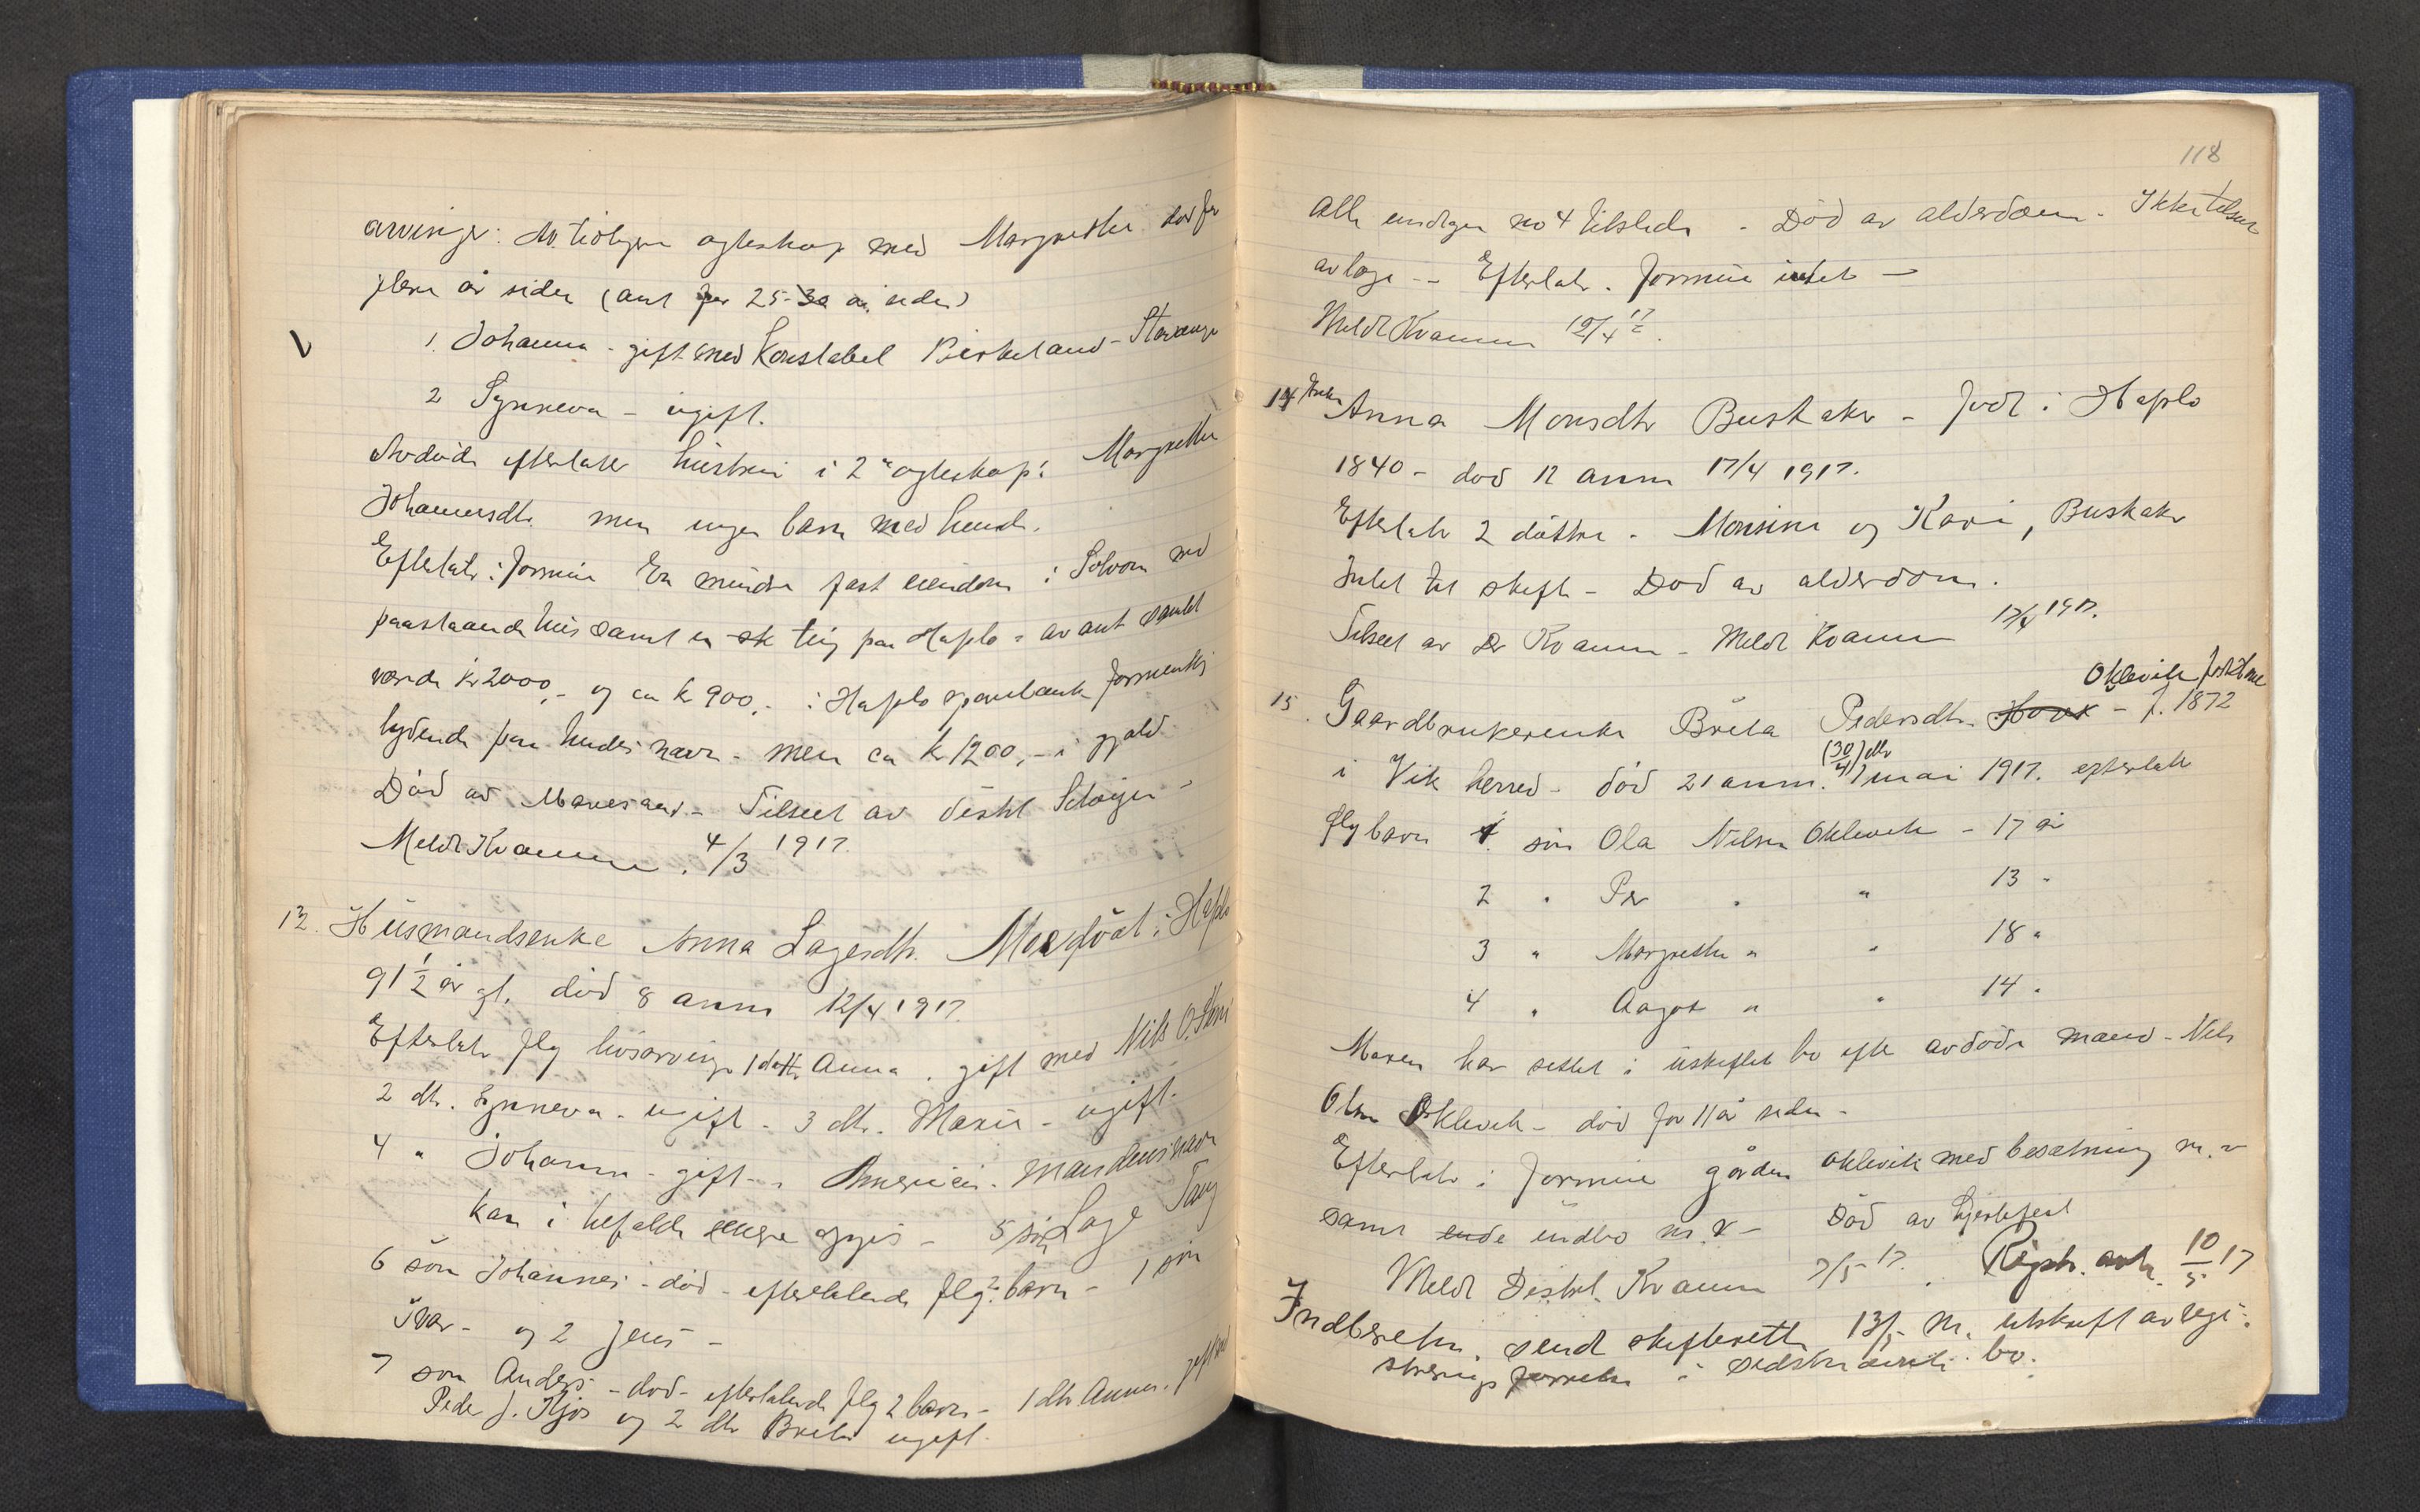 arvinger: Av tidligere egteskap med Margrethe død for
flere år siden (ant for 25-30 år siden)
V 1. Johanna - gift med Konstabel Birkeland - Stavanger
2 Synneva - ugift.
Avdøde efterlater hustru i 2. egteskap: Margrethe
Johannesdtr. men ingen barn med hende.
Efterlatt: Formue En mindre fast eiendom i Solvorn med
paastaaende hus samt en teig paa Hafslo - av ant samlet
værdi kr 2000,- og ca kr 900,- i Hafslo sparebank formentlig
lydende paa hendes navn - men ca kr 1200,- i gjæld
Død av - Tilseet av distrl
Meldt Kvamme. 4/3 1917.
12. Husmandsenke Anna Lagesdtr. i Hafslo
91 1/2 år gl. død 8 anm 12/4 1917
Efterlatr flg livsarvinger 1 datt. Anna. gift med Nils O.
2 dtr. Synneva - ugift - 3 dtr. Mari - ugift.
4 " Johanna - gift - i Amerika - Mandens navn
kan i tilfælde senere opgis - 5 søn Lage
6 søn Johannes - død - efterlatende flg 2 barn - 1 søn
Ivar - og 2 Jens -
7 søn Anders - død - efterlatende flg 2 barn - 1 dtr Anna. gift med
Peder J. Kjos og 2 dtr Brita ugift.
118
Alle myndige no 4 tilstede - Død av alderdom - Ikke tilseet
av læge -- Efterlatr. formue intet -
Meldt Kvamme 12/4 17.
14 Enke Anna Monsdtr Buskaker - født i Hafslo
1840 - død 12 anm 17/4 1917.
Efterlatr 2 døttre - Monsine og Kari, Buskaker
Intet til skifte - Død av alderdom.
Tilseet av Dr Kvamme - Meldt Kvamme 17/4 1917.
Oklevik
15. Gaardbrukerenke Brita Pedersdtr. - f. 1872
i Vik herred - død 21 anm. (30/4) 1 mai 1917. efterlatt
flg barn 1. søn Ola Nilsen Oklevik - 17 år
2 " Per " " 13 "
3 " Margrethe " " 18 "
4 " Aagot " " 14 "
Moren har sittet i uskiftet bo efter avdøde mand - Nils
Olsen Oklevik - død for 11 år siden -
Efterlatr i formue gården Oklevik med besætning m.v
samt indbo m.v - Død av hjertefeil
Meldt Distrl. Kvamme 7/5 17. Registr. avh. 10/5 17
Indberetn. sendt skifteretten 13/5 M. utskrift av regi-
strerings forretn i bo.